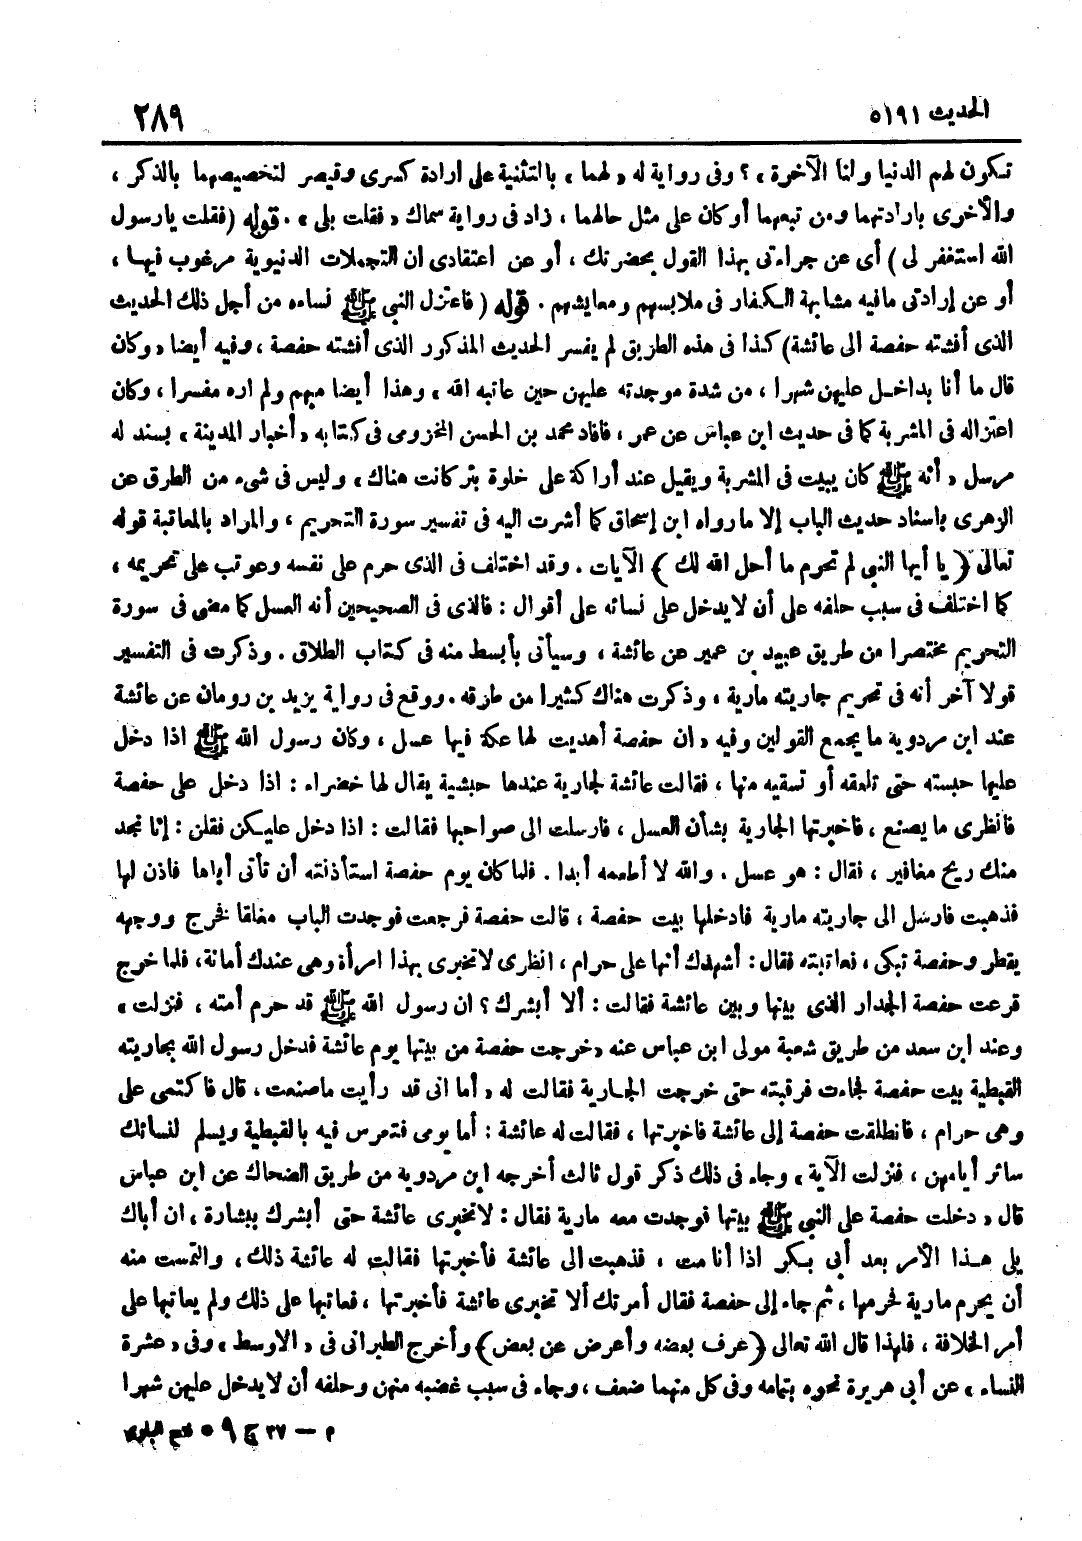 الحديث ٥١٩١
٢٨٩
تكون لهم الدنيا ولنا الآخرة » ؟ وفى رواية له « لهما » بالتثنية على ارادة كسرى وقيصر لتخصيصهما بالذكر ،
والأخرى بارادتهما ومن تبعهما أو كان على مثل حالهما ، زاد فى رواية سماك « فقلت بلى » . قوله (فقلت يارسول
الله استغفر لى ) أى عن جراءتى بهذا القول بحضرتك ، أو عن اعتقادى ان التجملات الدنيوية مرغوب فيها ،
أو عن إرادتى مافيه مشابهة الكفار فى ملابسهم ومعايشهم . قوله ( فاعتزل النبى ﷺ نساءه من أجل ذلك الحديث
الذى أفشته حفصة الى عائشة) كذا فى هذه الطريق لم يفسر الحديث المذكور الذى أفشته حفصة ، وفيه أيضا « وكان
قال ما أنا بداخل عليهن شهرا ، من شدة موجدته عليهن حين عاتبه الله » وهذا أيضا مبهم ولم اره مفسرا ، وكان
اعتزاله فى المشربة كما فى حديث ابن عباس عن عمر ، فافاد محمد بن الحسن المخزومى فى كتابه « أخبار المدينة » بسند له
مرسل « أنه ﷺ كان يبيت فى المشربة ويقيل عند أراكة على خلوة بئر كانت هناك » وليس فى شىء من الطرق عن
الزهرى باسناد حديث الباب إلا ما رواه ابن إسحاق كما أشرت اليه فى تفسير سورة التحريم ، والمراد بالمعاتبة قوله
تعالى ( يا أيها النبى لم تحرم ما أحل الله لك ) الآيات . وقد اختلف فى الذى حرم على نفسه وعوتب على تحريمه ،
كما اختلف فى سبب حلفه على أن لا يدخل على نسائه على أقوال : فالذى فى الصحيحين أنه العسل كما مضى فى سورة
التحريم مختصرا من طريق عبيد بن عمير عن عائشة ، وسيأتى بأبسط منه فى كتاب الطلاق . وذكرت فى التفسير
قولا آخر أنه فى تحريم جاريته مارية ، وذكرت هناك كثيرا من طرقه . ووقع فى رواية يزيد بن رومان عن عائشة
عند ابن مردوية ما يجمع القولين وفيه « ان حفصة أهديت لها عكة فيها عسل ، وكان رسول الله ﷺ اذا دخل
عليها حبسته حتى تلعقه أو تسقيه منها ، فقالت عائشة لجارية عندها حبشية يقال لها خضراء : اذا دخل على حفصة
فانظرى ما يصنع ، فاخبرتها الجارية بشأن العسل ، فارسلت الى صواحبها فقالت : اذا دخل عليكن فقلن : إنا نجد
منك ريح مغافير ، فقال : هو عسل ، والله لا أطعمه أبدا . فلما كان يوم حفصة استأذنته أن تأتى أباها فاذن لها
فذهبت فارسل الى جاريته مارية فادخلها بيت حفصة ، قالت حفصة فرجعت فوجدت الباب مغلقا فخرج ووجهه
يقطر وحفصة تبكى ، فعاتبته فقال : أشهدك أنها على حرام ، انظرى لا تخبرى بهذا امرأة وهى عندك أمانة ، فلما خرج
قرعت حفصة الجدار الذى بينها وبين عائشة فقالت : ألا أبشرك ؟ ان رسول الله ﷺ قد حرم أمته ، فنزلت »
وعند ابن سعد من طريق شعبة مولى ابن عباس عنه « خرجت حفصة من بيتها يوم عائشة فدخل رسول الله بجاريته
القبطية بيت حفصة فجاءت فرقبته حتى خرجت الجارية فقالت له « أما انى قد رأيت ماصنعت ، قال فاكتمى على
وهى حرام ، فانطلقت حفصة إلى عائشة فاخبرتها ، فقالت له عائشة : أما يومى فتعرس فيه بالقبطية ويسلم لنسائك
سائر أيامهن ، فنزلت الآية » وجاء فى ذلك ذكر قول ثالث أخرجه ابن مردوية من طريق الضحاك عن ابن عباس
قال « دخلت حفصة على النبى ﷺ بيتها فوجدت معه مارية فقال : لا تخبرى عائشة حتى أبشرك ببشارة ، ان أباك
يلى هذا الأمر بعد أبى بكر اذا أنا مت ، فذهبت الى عائشة فأخبرتها فقالت له عائشة ذلك ، والتمست منه
أن يحرم مارية فحرمها ، ثم جاء إلى حفصة فقال أمرتك ألا تخبرى عائشة فأخبرتها ، فعاتبها على ذلك ولم يعاتبها على
أمر الخلافة ، فلهذا قال الله تعالى (عرف بعضه وأعرض عن بعض) وأخرج الطبرانى فى « الاوسط » وفى « عشرة
النساء » عن أبى هريرة نحوه بتمامه وفى كل منهما ضعف ، وجاء فى سبب غضبه منهن وحلفه أن لا يدخل عليهن شهرا
م — ٣٧ ج ٩ * فتح البارى